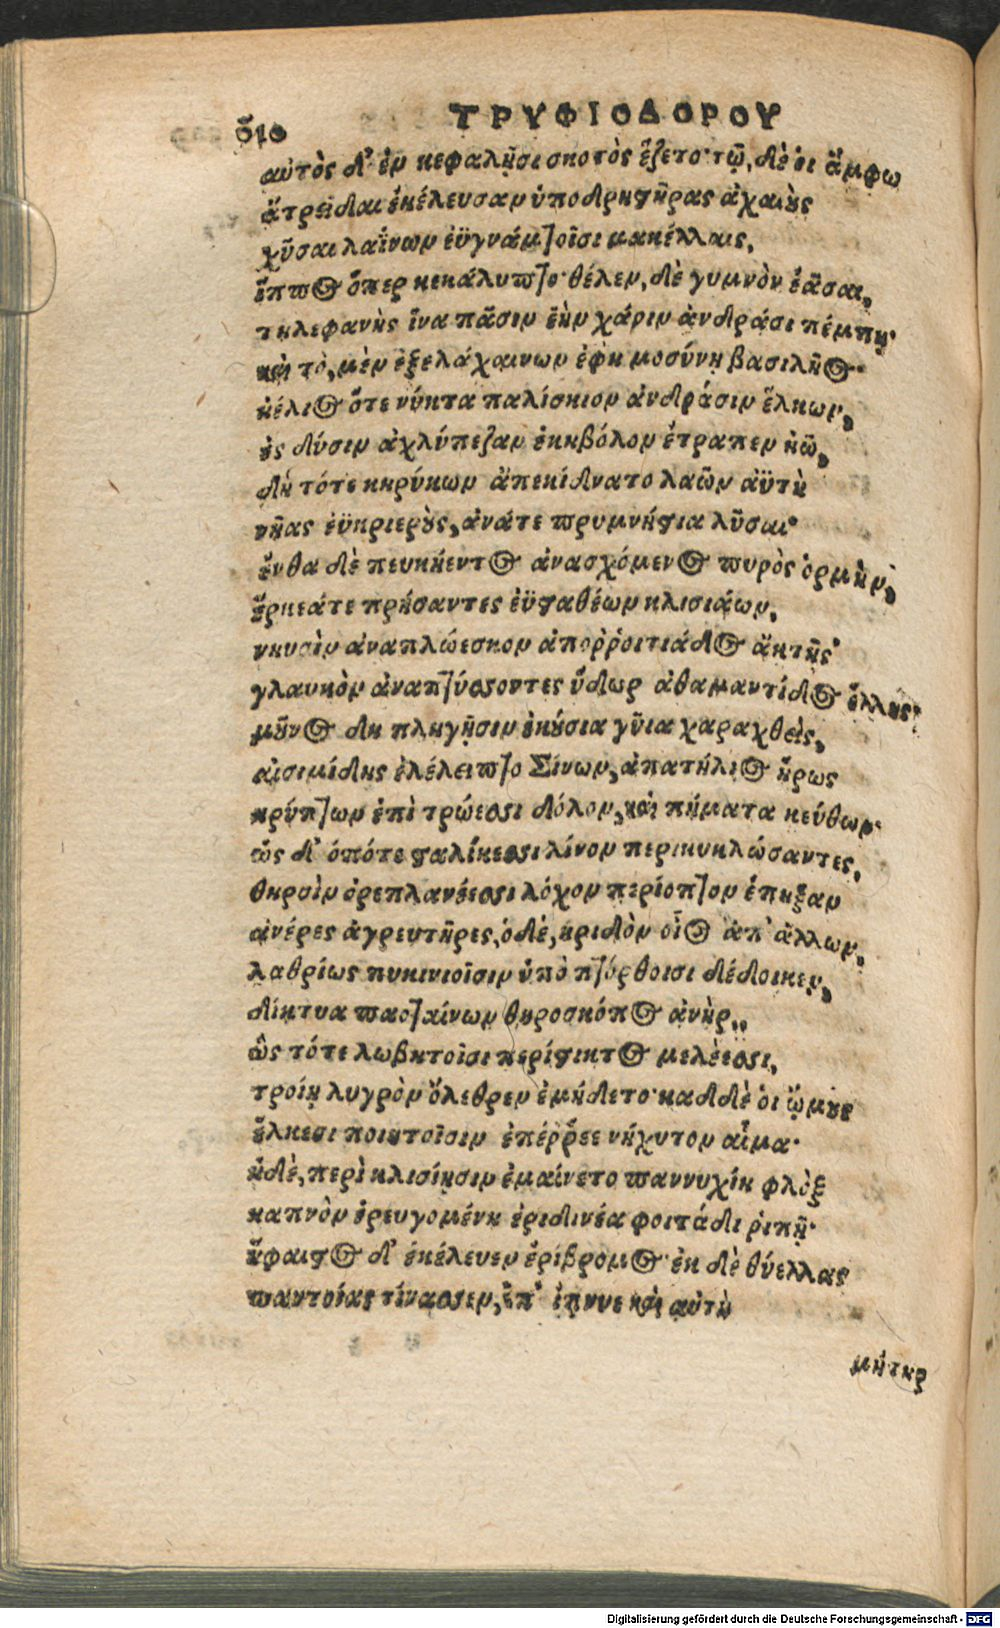 ΤΡΥΦΙΟΔΟΡΟΥ
αὐτὸς δ' ἐν κεφαλῇσι σκοτὸς ἕζετο· τῷ, δὲ οἱ ἄμφω
ἄτρεῖδαι ἐκέλευσαν ὑποδρηστῆρας ἀχαιοὺς
χῦσαι λαΐνων ἐϋγνάμπτοισι μακέλλαις,
ἵππος ὅπερ κεκάλυπτο· θέλεν, δὲ γυμνὸν ἐᾶσαι,
τηλεφανὴς ἵνα πᾶσιν ἑὴν χάριν ἀνδράσι πέμπῃ·
καὶ τὸ, μὲν ἐξελάχαινων ἐφημοσύνῃ βασιλῆος·
ἠέλιος ὅτε νύκτα παλίσκιον ἀνδράσιν ἕλκων,
ἐς δύσιν ἀχλύπεζαν ἑκηβόλον ἔτραπεν ἠῶ,
δὴ τότε κηρύκων ἀπεκίδνατο λαῶν ἀϋτὴ
νῆας ἐϋκριερους, ἀνάτε πρυμνήσια λῦσαι·
ἔνθα δὲ πευκήεντος ἀνασχόμενος πυρὸς ὁρμὴν,
ἕρκεάτε πρήσαντες ἐϋσταθέων κλισιάων,
νηυσὶν ἀναπλώεσκον ἀποῤῥοιτιάδος ἄκτῆς·
γλαυκὸν ἀναπτύσσοντες ὕδωρ ἀθαμαντίδος ἕλλης·
μοῦνος δη πληγῇσιν ἑκούσια γῦια χαραχθεὶς,
αἰσιμίδης ἐλέλειπτο Σίνων, ἀπατήλιος ἥρως
κρύπτων ἐπὶ τρώεσσι δόλον, καὶ πήματα κεύθων·
ὡς δ' ὁπότε σταλίκεσσι λίνον περικυκλώσαντες,
θηρσὶν ὀρεπλανέεσσι λόχον περίοπτον ἔπηξαν
ἀνέρες ἀγρευτῆρες, ὁ δὲ, κριδὸν οἷος ἀπ' ἄλλων,
λαθρίως πυκινιοῖσιν ὑπὸ πτόρθοισι δέδοικεν,
δίκτυα παπταίνων θηροσκόπος ἀνὴρ,,
ὣς τότε λωβητοῖσι περίστικτος μελέεσσι,
τροίῃ λυγρὸν ὄλεθρεν ἐμήδετο· καδδὲ οἱ ὤμους
ἕλκεσι ποιητοῖσιν ἐπέῤῥεε νήχυτον αἷμα·
ἡδὲ, περὶ κλισίῃσιν ἐμαίνετο παννυχίη φλὸξ
καπνὸν ἐρευγομένη ἐριδινέα φοιτάδι ῥιπῇ·
ἥφαιστος δ' ἐκέλευεν ἐρίβρομος· ἐκ δὲ θύελλας
παντοίας τίνασσεν, ἐπ' ἔπνυε καὶ αὐτὴ
μήτηρ
Digitalisierung gefördert durch die Deutsche Forschungsgemeinschaft - DFG